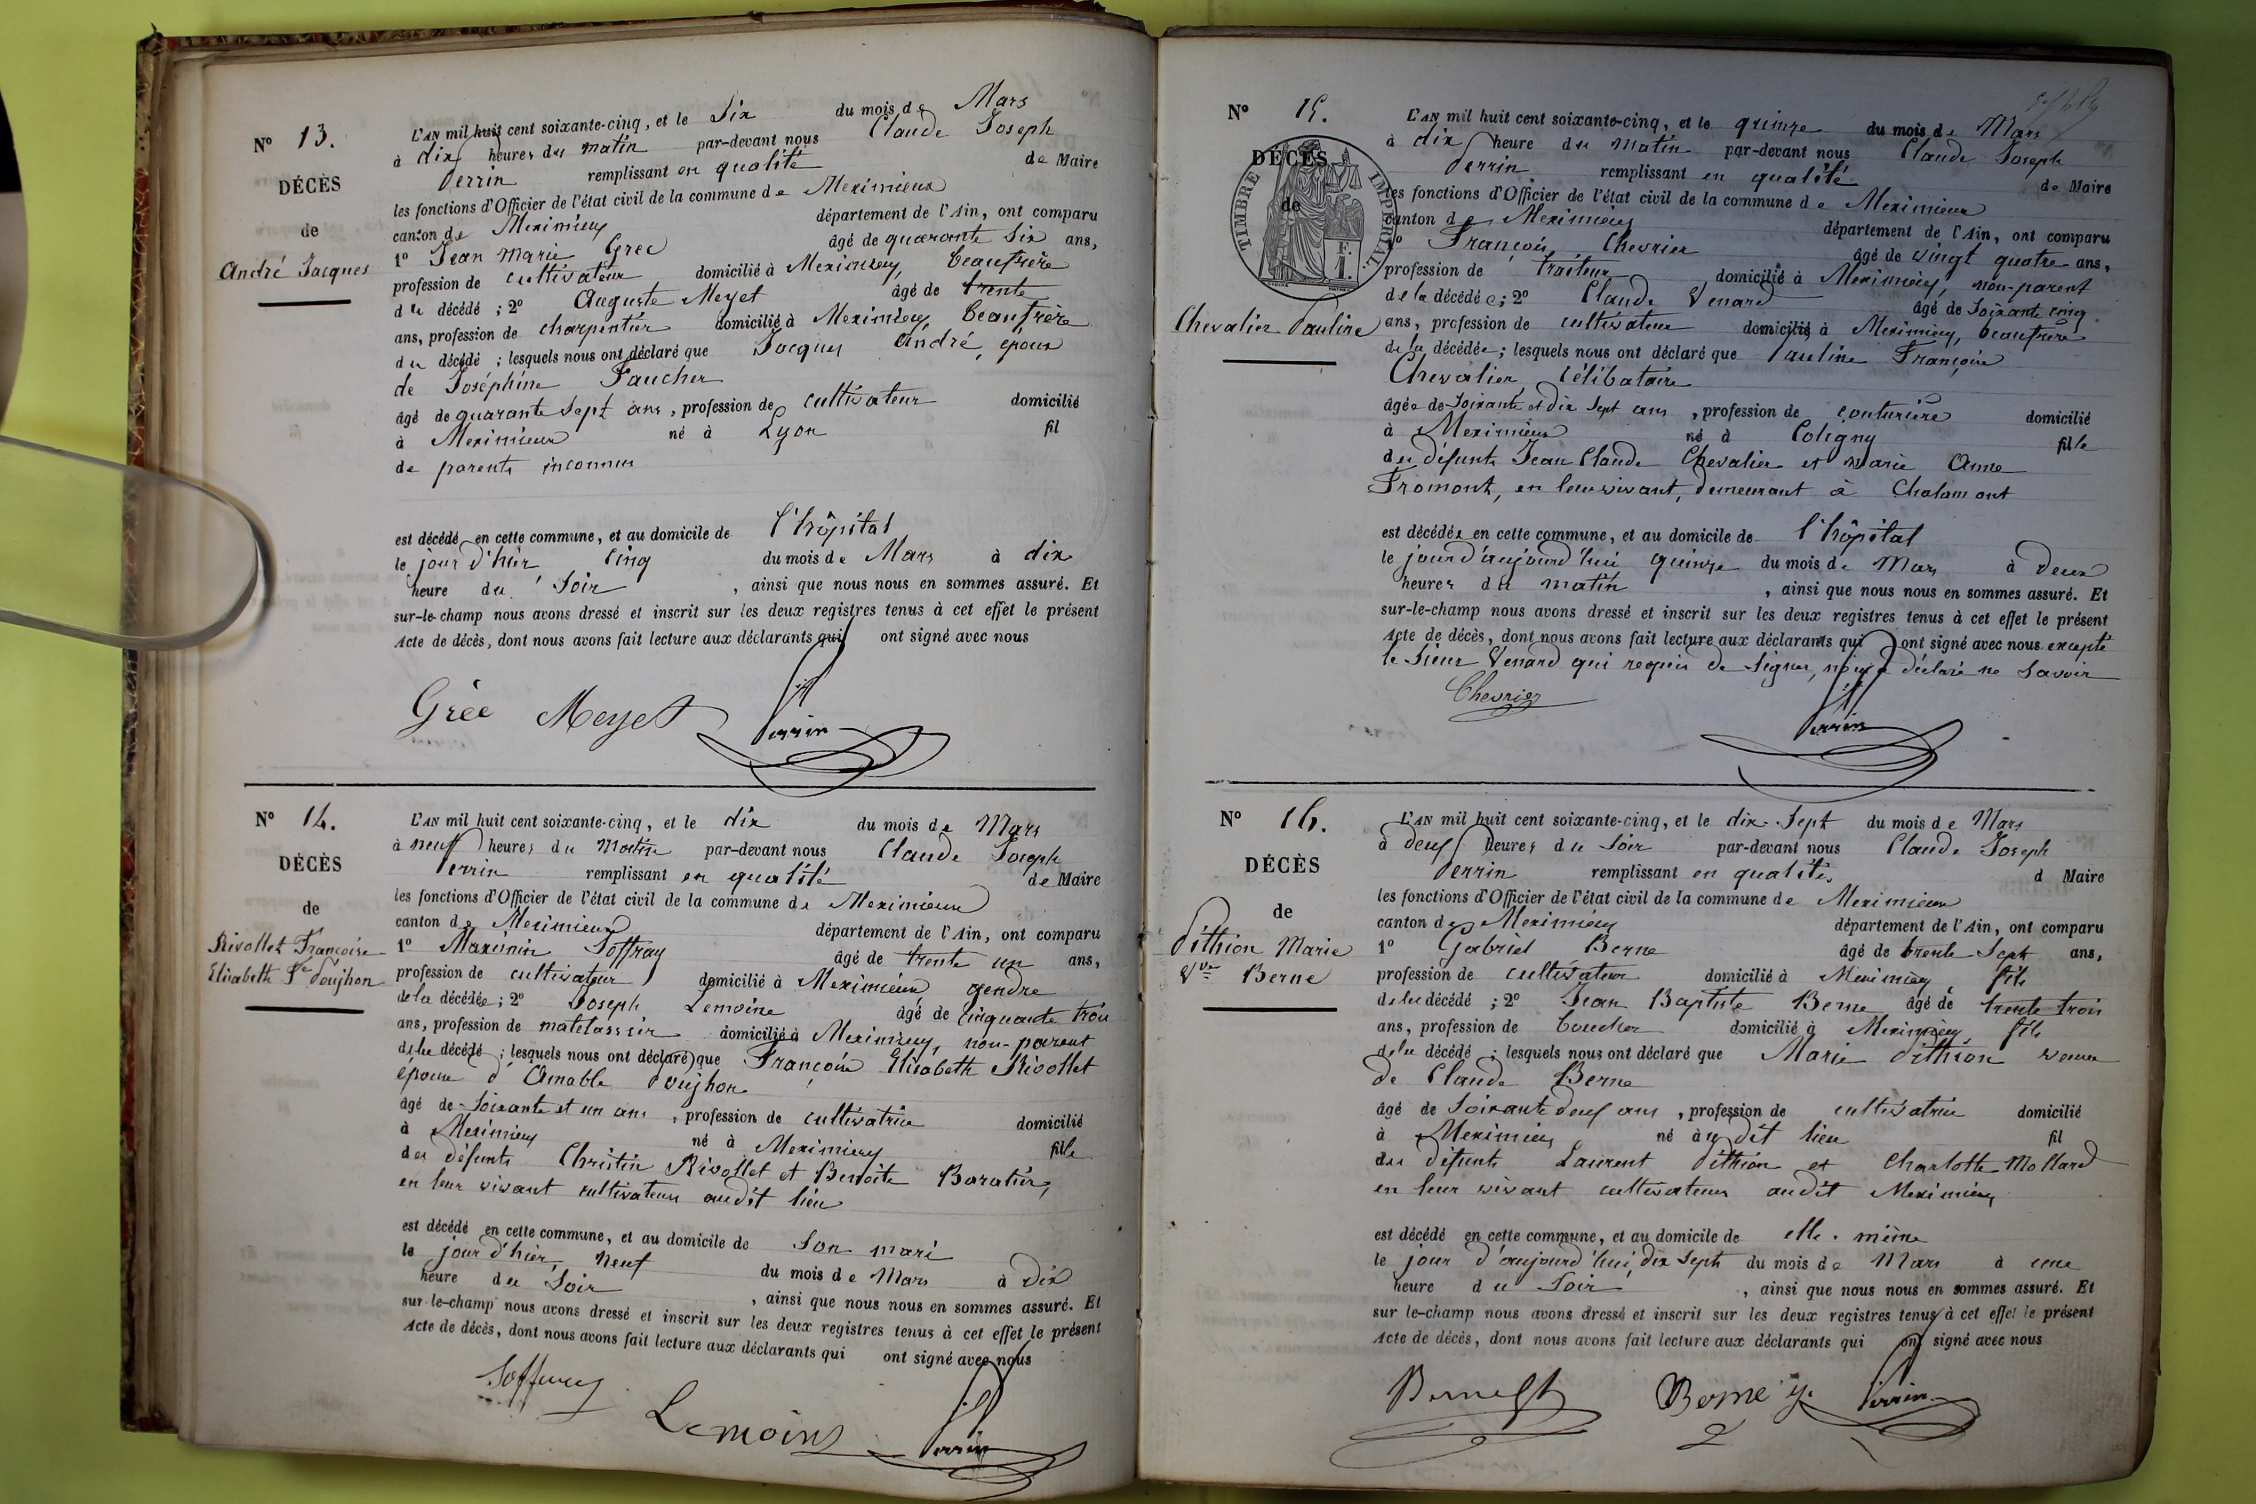 N° 13.
DÉCÈS
de
André Jacques
L'AN mil huit cent soixante-cinq, et le Six du mois de Mars
à dix heures du matin par-devant nous Claude Joseph
Perrin remplissant en qualité de Maire
les fonctions d'Officier de l'état civil de la commune de Meximieux
canton de Meximieux département de l'Ain, ont comparu
1° Jean Marie Grec âgé de quarante Six ans,
profession de cultivateur domicilié à Meximieux, beaufrère
du décédé ; 2° Auguste Meyet âgé de trente
ans, profession de charpentier domicilié à Meximieux, beaufrère
du décédé ; lesquels nous ont déclaré que Jacques André, époux
de Joséphine Faucher
âgé de quarante Sept ans, profession de cultivateur domicilié
à Meximieux né à Lyon fil
de parents inconnus
est décédé en cette commune, et au domicile de l'hôpital
le jour d'hier Cinq du mois de Mars à dix
heure du Soir , ainsi que nous nous en sommes assuré. Et
sur-le-champ nous avons dressé et inscrit sur les deux registres tenus à cet effet le présent
Acte de décès, dont nous avons fait lecture aux déclarants qui ont signé avec nous
Gréc Meyet Perrin
N° 14.
DÉCÈS
de
Rivollet Françoise
Elisabeth Fe Poujhon
L'AN mil huit cent soixante-cinq, et le dix du mois de Mars
à neuf heures du Matin par-devant nous Claude Joseph
Perrin remplissant en qualité de Maire
les fonctions d'Officier de l'état civil de la commune de Meximieux
canton de Meximieux département de l'Ain, ont comparu
1° Maximin Soffray âgé de trente un ans,
profession de cultivateur domicilié à Meximieux gendre
de la décédée ; 2° Joseph Lemoine âgé de Cinquante trois
ans, profession de matelassier domicilié à Meximieux, non-parent
de la décédé ; lesquels nous ont déclaré que Françoise Elisabeth Rivollet
épouse d'Amable Poujhon
âgé de Soixante et un ans, profession de cultivatrice domicilié
à Meximieux né à Meximieux fille
des défunts Christin Rivollet et Benoîte Baratier,
en leur vivant cultivateurs audit lieu
est décédé en cette commune, et au domicile de Son mari
le jour d'hier, Neuf du mois de Mars à Dix
heure du Soir , ainsi que nous nous en sommes assuré. Et
sur-le-champ nous avons dressé et inscrit sur les deux registres tenus à cet effet le présent
Acte de décès, dont nous avons fait lecture aux déclarants qui ont signé avec nous
Soffrey Lemoine Perrin
N° 15.
DÉCÈS
de
TIMBRE IMPÉRIAL
Chevalier Pauline
L'AN mil huit cent soixante-cinq, et le quinze du mois de Mars
à dix heure du Matin par-devant nous Claude Joseph
Perrin remplissant en qualité de Maire
les fonctions d'Officier de l'état civil de la commune de Meximieux
canton de Meximieux département de l'Ain, ont comparu
1° François Chevrier âgé de vingt quatre ans,
profession de traiteur domicilié à Meximieux, non-parent
de la décédée ; 2° Claude Venard âgé de Soixante cinq
ans, profession de cultivateur domicilié à Meximieux, beaufrère
de la décédée ; lesquels nous ont déclaré que Pauline Françoise
Chevalier, Célibataire
âgée de Soixante et dix Sept ans, profession de couturière domicilié
à Meximieux né à Coligny fille
des défunts Jean Claude Chevalier et Marie Anne
Fromont, en leur vivant, demeurant à Chalamont
est décédée en cette commune, et au domicile de l'hôpital
le jour d'aujourd'hui quinze du mois de Mars à Deux
heures du matin , ainsi que nous nous en sommes assuré. Et
sur-le-champ nous avons dressé et inscrit sur les deux registres tenus à cet effet le présent
Acte de décès, dont nous avons fait lecture aux déclarants qui ont signé avec nous excepté
le Sieur Venard qui requis de Signer, nous a déclaré ne Savoir
Chevrier Perrin
N° 16.
DÉCÈS
de
Péthion Marie
Vve Berne
L'AN mil huit cent soixante-cinq, et le dix-Sept du mois de Mars
à deux heures du Soir par-devant nous Claude Joseph
Perrin remplissant en qualité d Maire
les fonctions d'Officier de l'état civil de la commune de Meximieux
canton de Meximieux département de l'Ain, ont comparu
1° Gabriel Berne âgé de trente Sept ans,
profession de cultivateur domicilié à Meximieux fils
de la décédé ; 2° Jean Baptiste Berne âgé de trente trois
ans, profession de boucher domicilié à Meximieux, fils
de la décédé ; lesquels nous ont déclaré que Marie Péthion veuve
de Claude Berne
âgé de Soixante deux ans, profession de cultivatrice domicilié
à Meximieux né audit lieu fil
des défunts Laurent Péthion et Charlotte Mollard
en leur vivant cultivateurs audit Meximieux
est décédé en cette commune, et au domicile de elle-même
le jour d'aujourd'hui, dix Sept du mois de Mars à une
heure du Soir , ainsi que nous nous en sommes assuré. Et
sur le-champ nous avons dressé et inscrit sur les deux registres tenus à cet effet le présent
Acte de décès, dont nous avons fait lecture aux déclarants qui ont signé avec nous
Berne Perrin